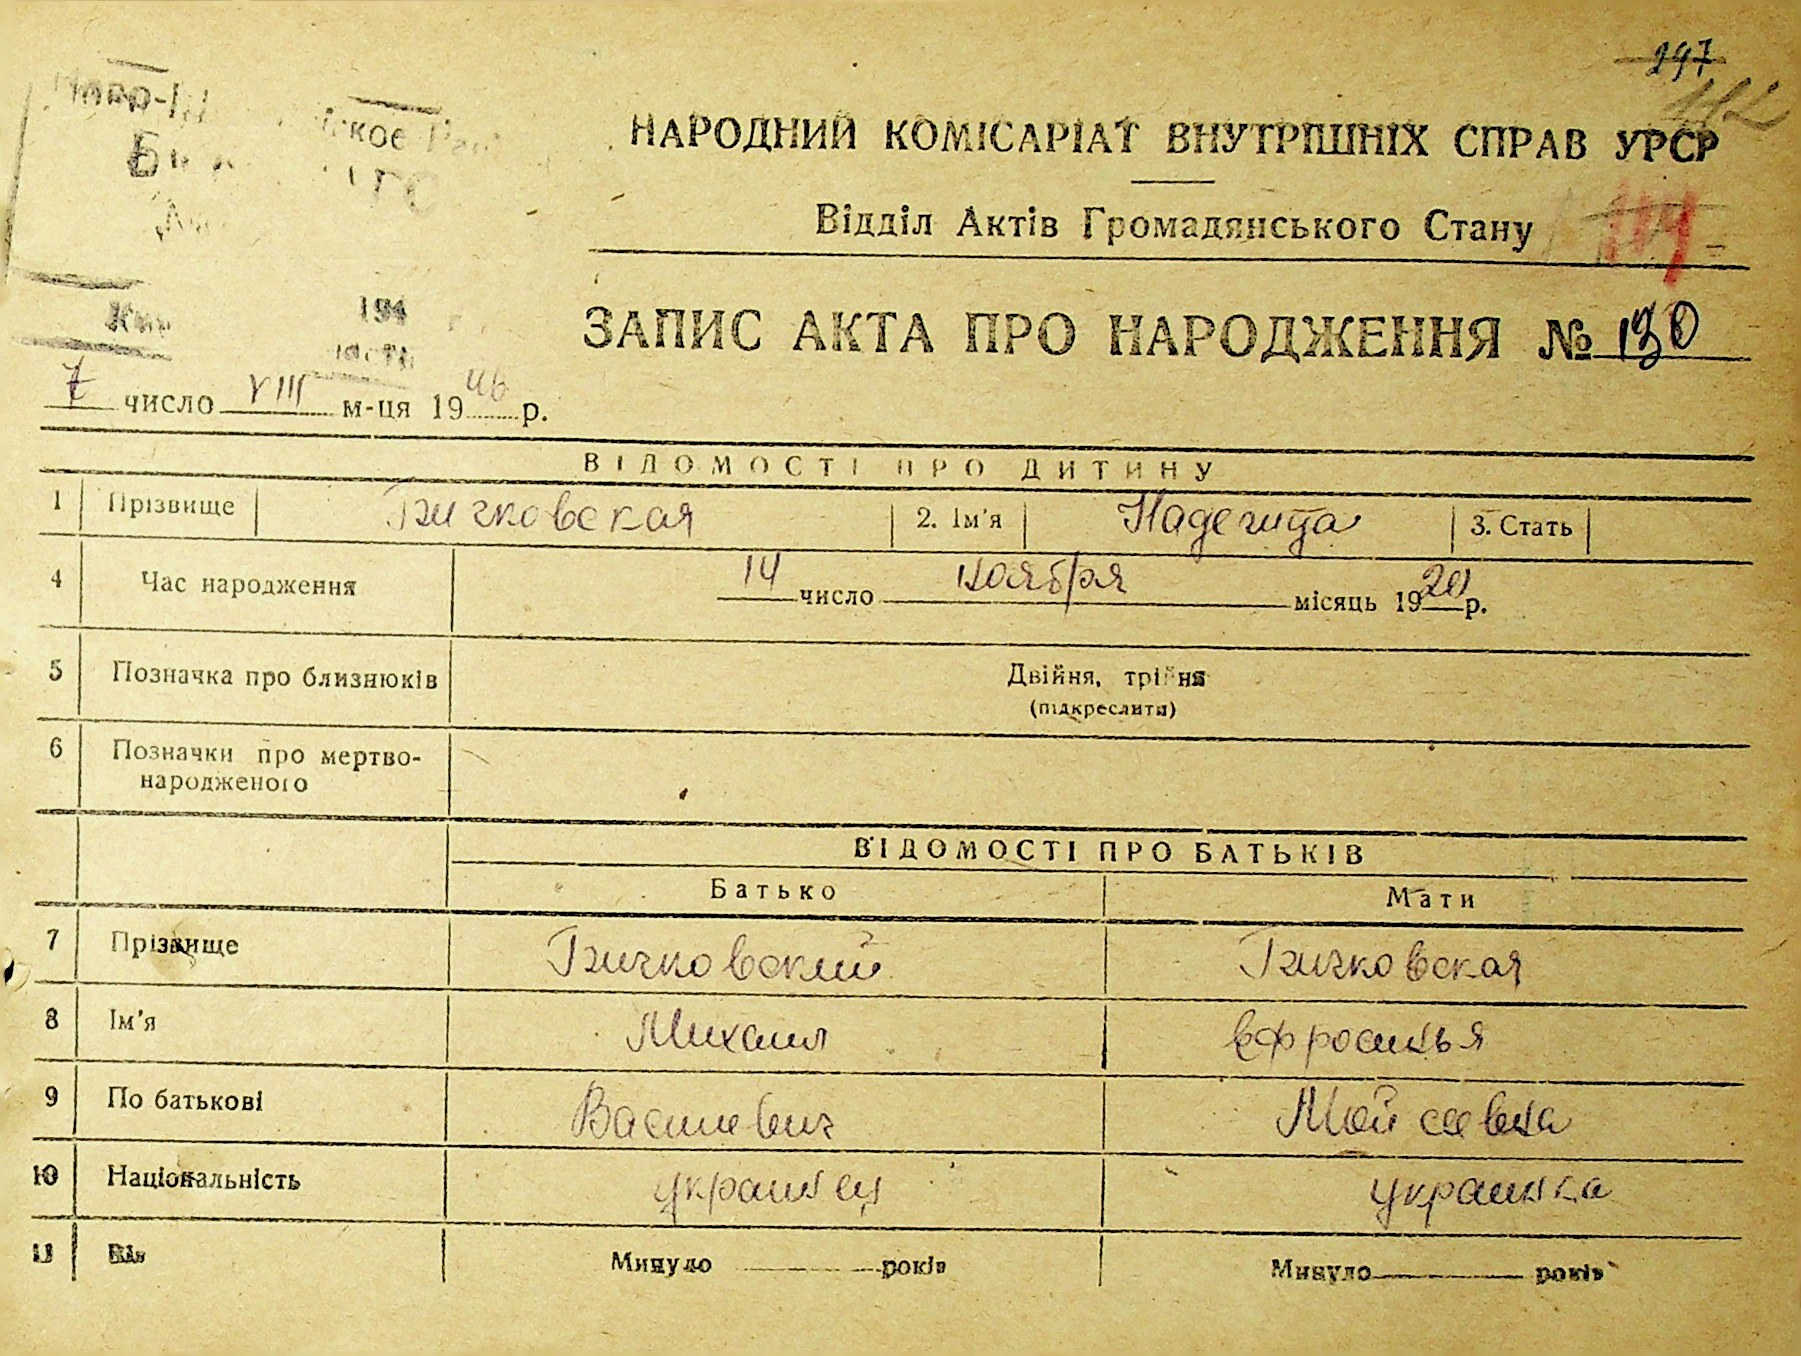 197
НАРОДНИЙ КОМІСАРІАТ ВНУТРІШНІХ СПРАВ УРСР
Відділ Актів Громадянського Стану
ЗАПИС АКТА ПРО НАРОДЖЕННЯ № 130
7 число VIII м-ця 1946 р.
ВІДОМОСТІ ПРО ДИТИНУ
1 Прізвище Гичковская 2. Ім'я 3. Стать
4 Час народження 14 число ноября місяць 1920 р.
5 Позначка про близнюків Двійня, трійня
(підкреслити)
6 Позначки про мертво-
народженого
ВІДОМОСТІ ПРО БАТЬКІВ
Батько Мати
7 Прізвище Гичковский Гичковская
8 Ім'я Михаил Ефросинья
9 По батькові Василевич Мойсеевна
10 Національність украинец украинка
11 Вік Минуло років Минуло років